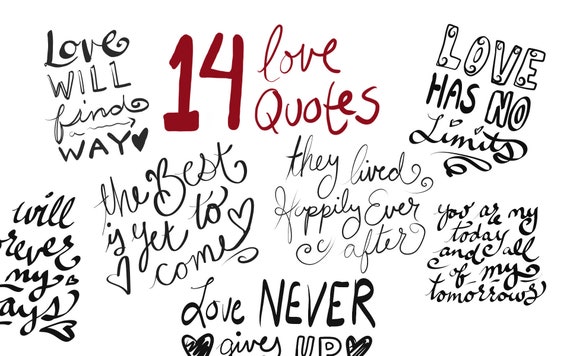 Love
WILL
find
a
WAY
14 love
Quotes
LOVE
HAS NO
Limits
the Best
is yet to
come
they lived
Happily Ever
after
will
my
you are my
today
and all
of my
tomorrows
Love NEVER
gives UP